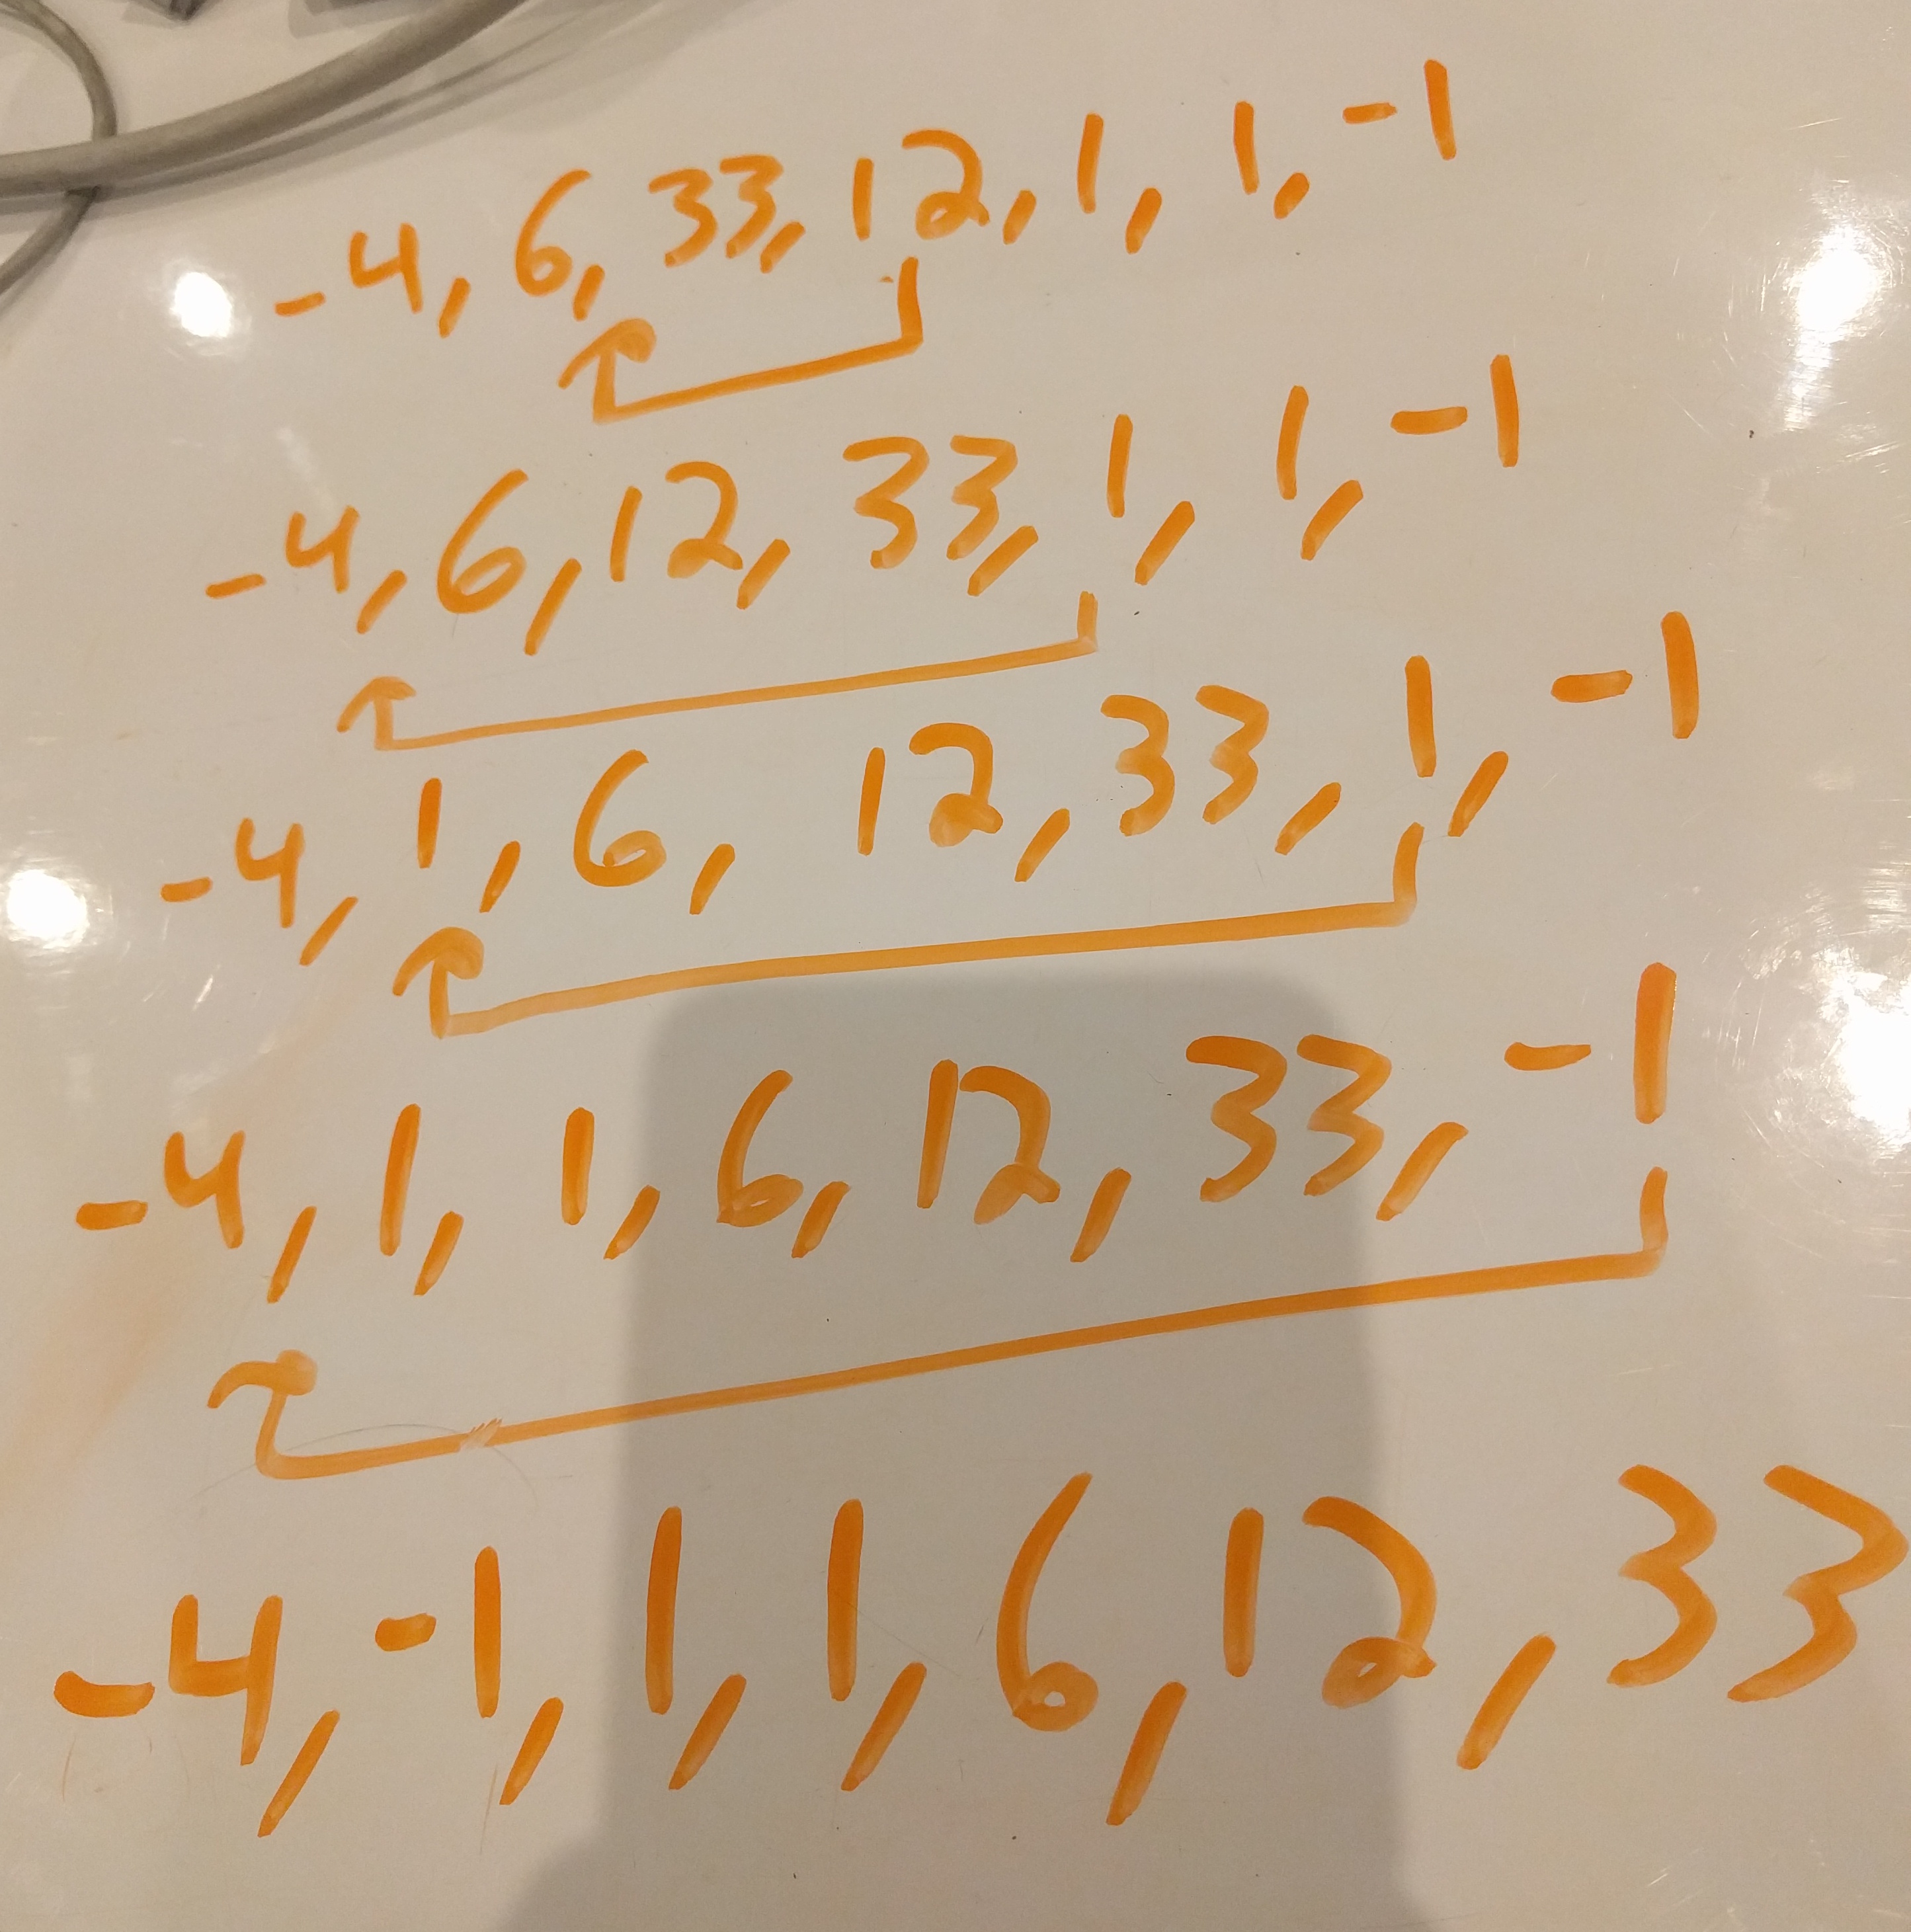 -4, 6, 33, 12, 1, 1, -1
-4, 6, 12, 33, 1, 1, -1
-4, 1, 6, 12, 33, 1, -1
-4, 1, 1, 6, 12, 33, -1
-4, -1, 1, 1, 6, 12, 33